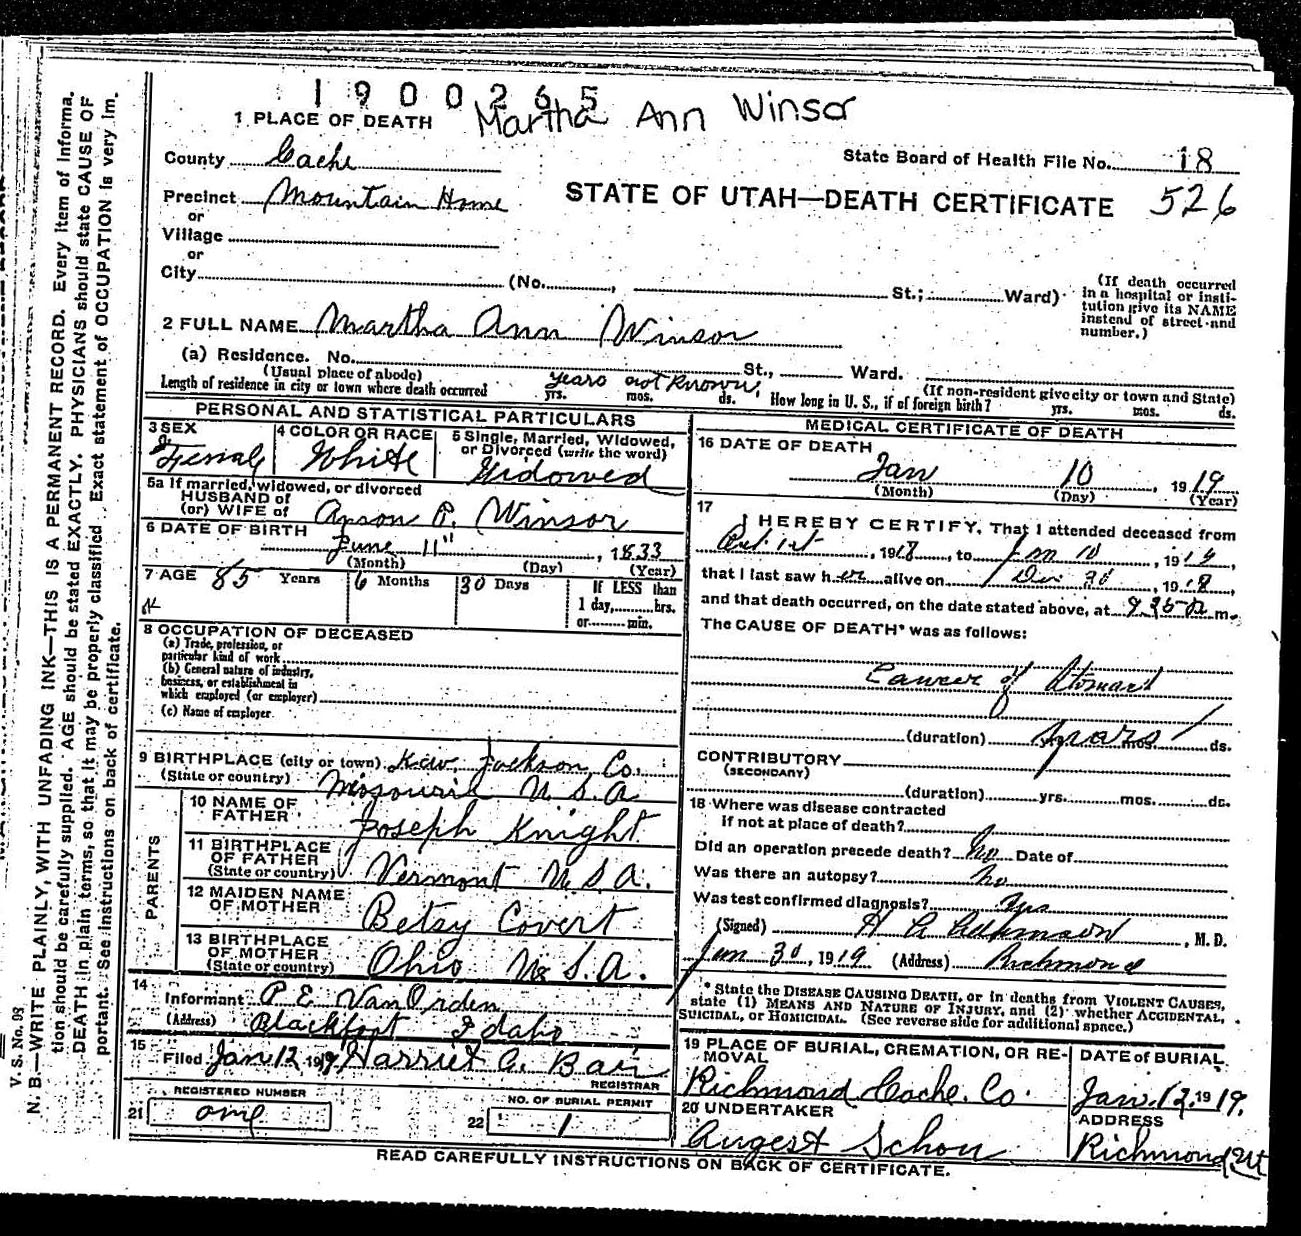 1900265
Martha Ann Winsor
1 PLACE OF DEATH
County Cache
State Board of Health File No. 18
Precinct Mountain Home
STATE OF UTAH—DEATH CERTIFICATE 526
or
Village
or
City (No. , St.; Ward)
(If death occurred
in a hospital or insti-
tution give its NAME
instead of street and
number.)
2 FULL NAME Martha Ann Winsor
(a) Residence. No. St., Ward.
(Usual place of abode) (If non-resident give city or town and State)
Length of residence in city or town where death occurred years not known yrs. mos. ds. How long in U. S., if of foreign birth? yrs. mos. ds.
PERSONAL AND STATISTICAL PARTICULARS
3 SEX
Female
4 COLOR OR RACE
White
5 Single, Married, Widowed,
or Divorced (write the word)
Widowed
5a If married, widowed, or divorced
HUSBAND of
(or) WIFE of Anson P. Winsor
6 DATE OF BIRTH
June 11" , 1833
(Month) (Day) (Year)
7 AGE 85 Years 6 Months 30 Days
IF LESS than
1 day, hrs.
or min.
8 OCCUPATION OF DECEASED
(a) Trade, profession, or
particular kind of work
(b) General nature of industry,
business, or establishment in
which employed (or employer)
(c) Name of employer
9 BIRTHPLACE (city or town) Kaw, Jackson, Co.
(State or country) Missouri U. S. A
PARENTS
10 NAME OF
FATHER Joseph Knight
11 BIRTHPLACE
OF FATHER
(State or country) Vermont U. S. A.
12 MAIDEN NAME
OF MOTHER Betsy Covert
13 BIRTHPLACE
OF MOTHER
(State or country) Ohio U. S. A.
14
Informant P E VanOrden
(Address) Blackfoot Idaho
15
Filed Jan 12 1919, Harriet A. Bair
REGISTRAR
REGISTERED NUMBER
21 one
NO. OF BURIAL PERMIT
22 1
MEDICAL CERTIFICATE OF DEATH
16 DATE OF DEATH
Jan 10 , 1919
(Month) (Day) (Year)
17
I HEREBY CERTIFY, That I attended deceased from
1st , 1918, to Jan 10 , 1919,
that I last saw her alive on Dec 30 , 1918,
and that death occurred, on the date stated above, at 9 35 a m.
The CAUSE OF DEATH* was as follows:
Cancer of Stomach
(duration) years yrs. mos. ds.
CONTRIBUTORY
(SECONDARY)
(duration) yrs. mos. ds.
18 Where was disease contracted
if not at place of death?
Did an operation precede death? No Date of
Was there an autopsy? No
Was test confirmed diagnosis? Yes
(Signed) , M. D.
Jan 30, 1919 (Address) Richmond
* State the DISEASE CAUSING DEATH, or in deaths from VIOLENT CAUSES,
state (1) MEANS AND NATURE OF INJURY, and (2) whether ACCIDENTAL,
SUICIDAL, or HOMICIDAL. (See reverse side for additional space.)
19 PLACE OF BURIAL, CREMATION, OR RE-
MOVAL
Richmond Cache. Co.
DATE of BURIAL
Jan. 12. 1919.
20 UNDERTAKER
August Schou
ADDRESS
Richmond Ut
READ CAREFULLY INSTRUCTIONS ON BACK OF CERTIFICATE.
V. S. No. 98
N. B.—WRITE PLAINLY, WITH UNFADING INK—THIS IS A PERMANENT RECORD. Every item of informa-
tion should be carefully supplied. AGE should be stated EXACTLY. PHYSICIANS should state CAUSE OF
DEATH in plain terms, so that it may be properly classified. Exact statement of OCCUPATION is very im-
portant. See instructions on back of certificate.